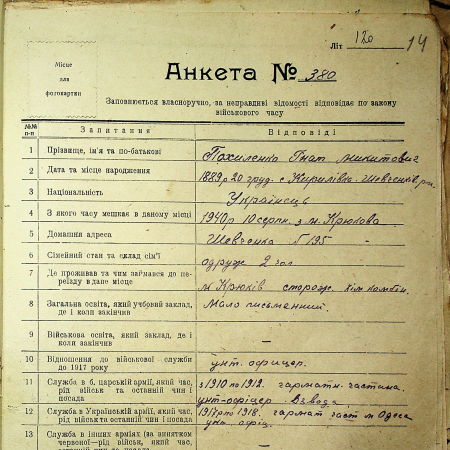 Літ 120 14
Місце
для
фотокартки
Анкета № 380
Заповнюється власноручно, за неправдиві відомості відповідає по закону
військового часу
№№
п-п
Запитання
Відповіді
1 Прізвище, ім'я та по-батькові Похиленко Гнат Микитович
2 Дата та місце народження 1889 р 20 груд. с Кирилівка Шевченків
3 Національність Українець
4 З якого часу мешкає в даному місці 1940 р 10 серпн. з м. Крюкова
5 Домашня адреса Шевченка 195 -
6 Сімейний стан та склад сім'ї одруж 2 чол
7 Де проживав та чим займався до переїзду в дане місце
м Крюків сторож. хім комбін.
8 Загальна освіта, який учбовий заклад,
де і коли закінчив
Мало письменний.
9 Військова освіта, який заклад, де і
коли закінчив
—
10 Відношення до військової служби
до 1917 року
унт. офицер.
11 Служба в б. царській армії, який час,
рід військ та останній чин і
посада
з 1910 по 1912. гарматн. частина.
унт-офіцер. Взвода.
12 Служба в Українській армії, який час,
рід військ та останній чин і посада
1917 р по 1918. гармат част м Одеса
унт. офіц.
13 Служба в інших арміях (за винятком
червоної—рід військ, який час,
останній чин та посада
—